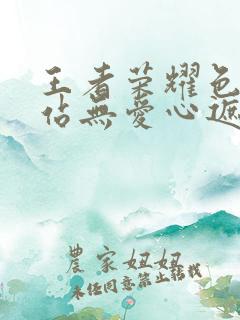 王者荣耀色
佔無愛心遮
農家妞妞
未经同意禁止转载